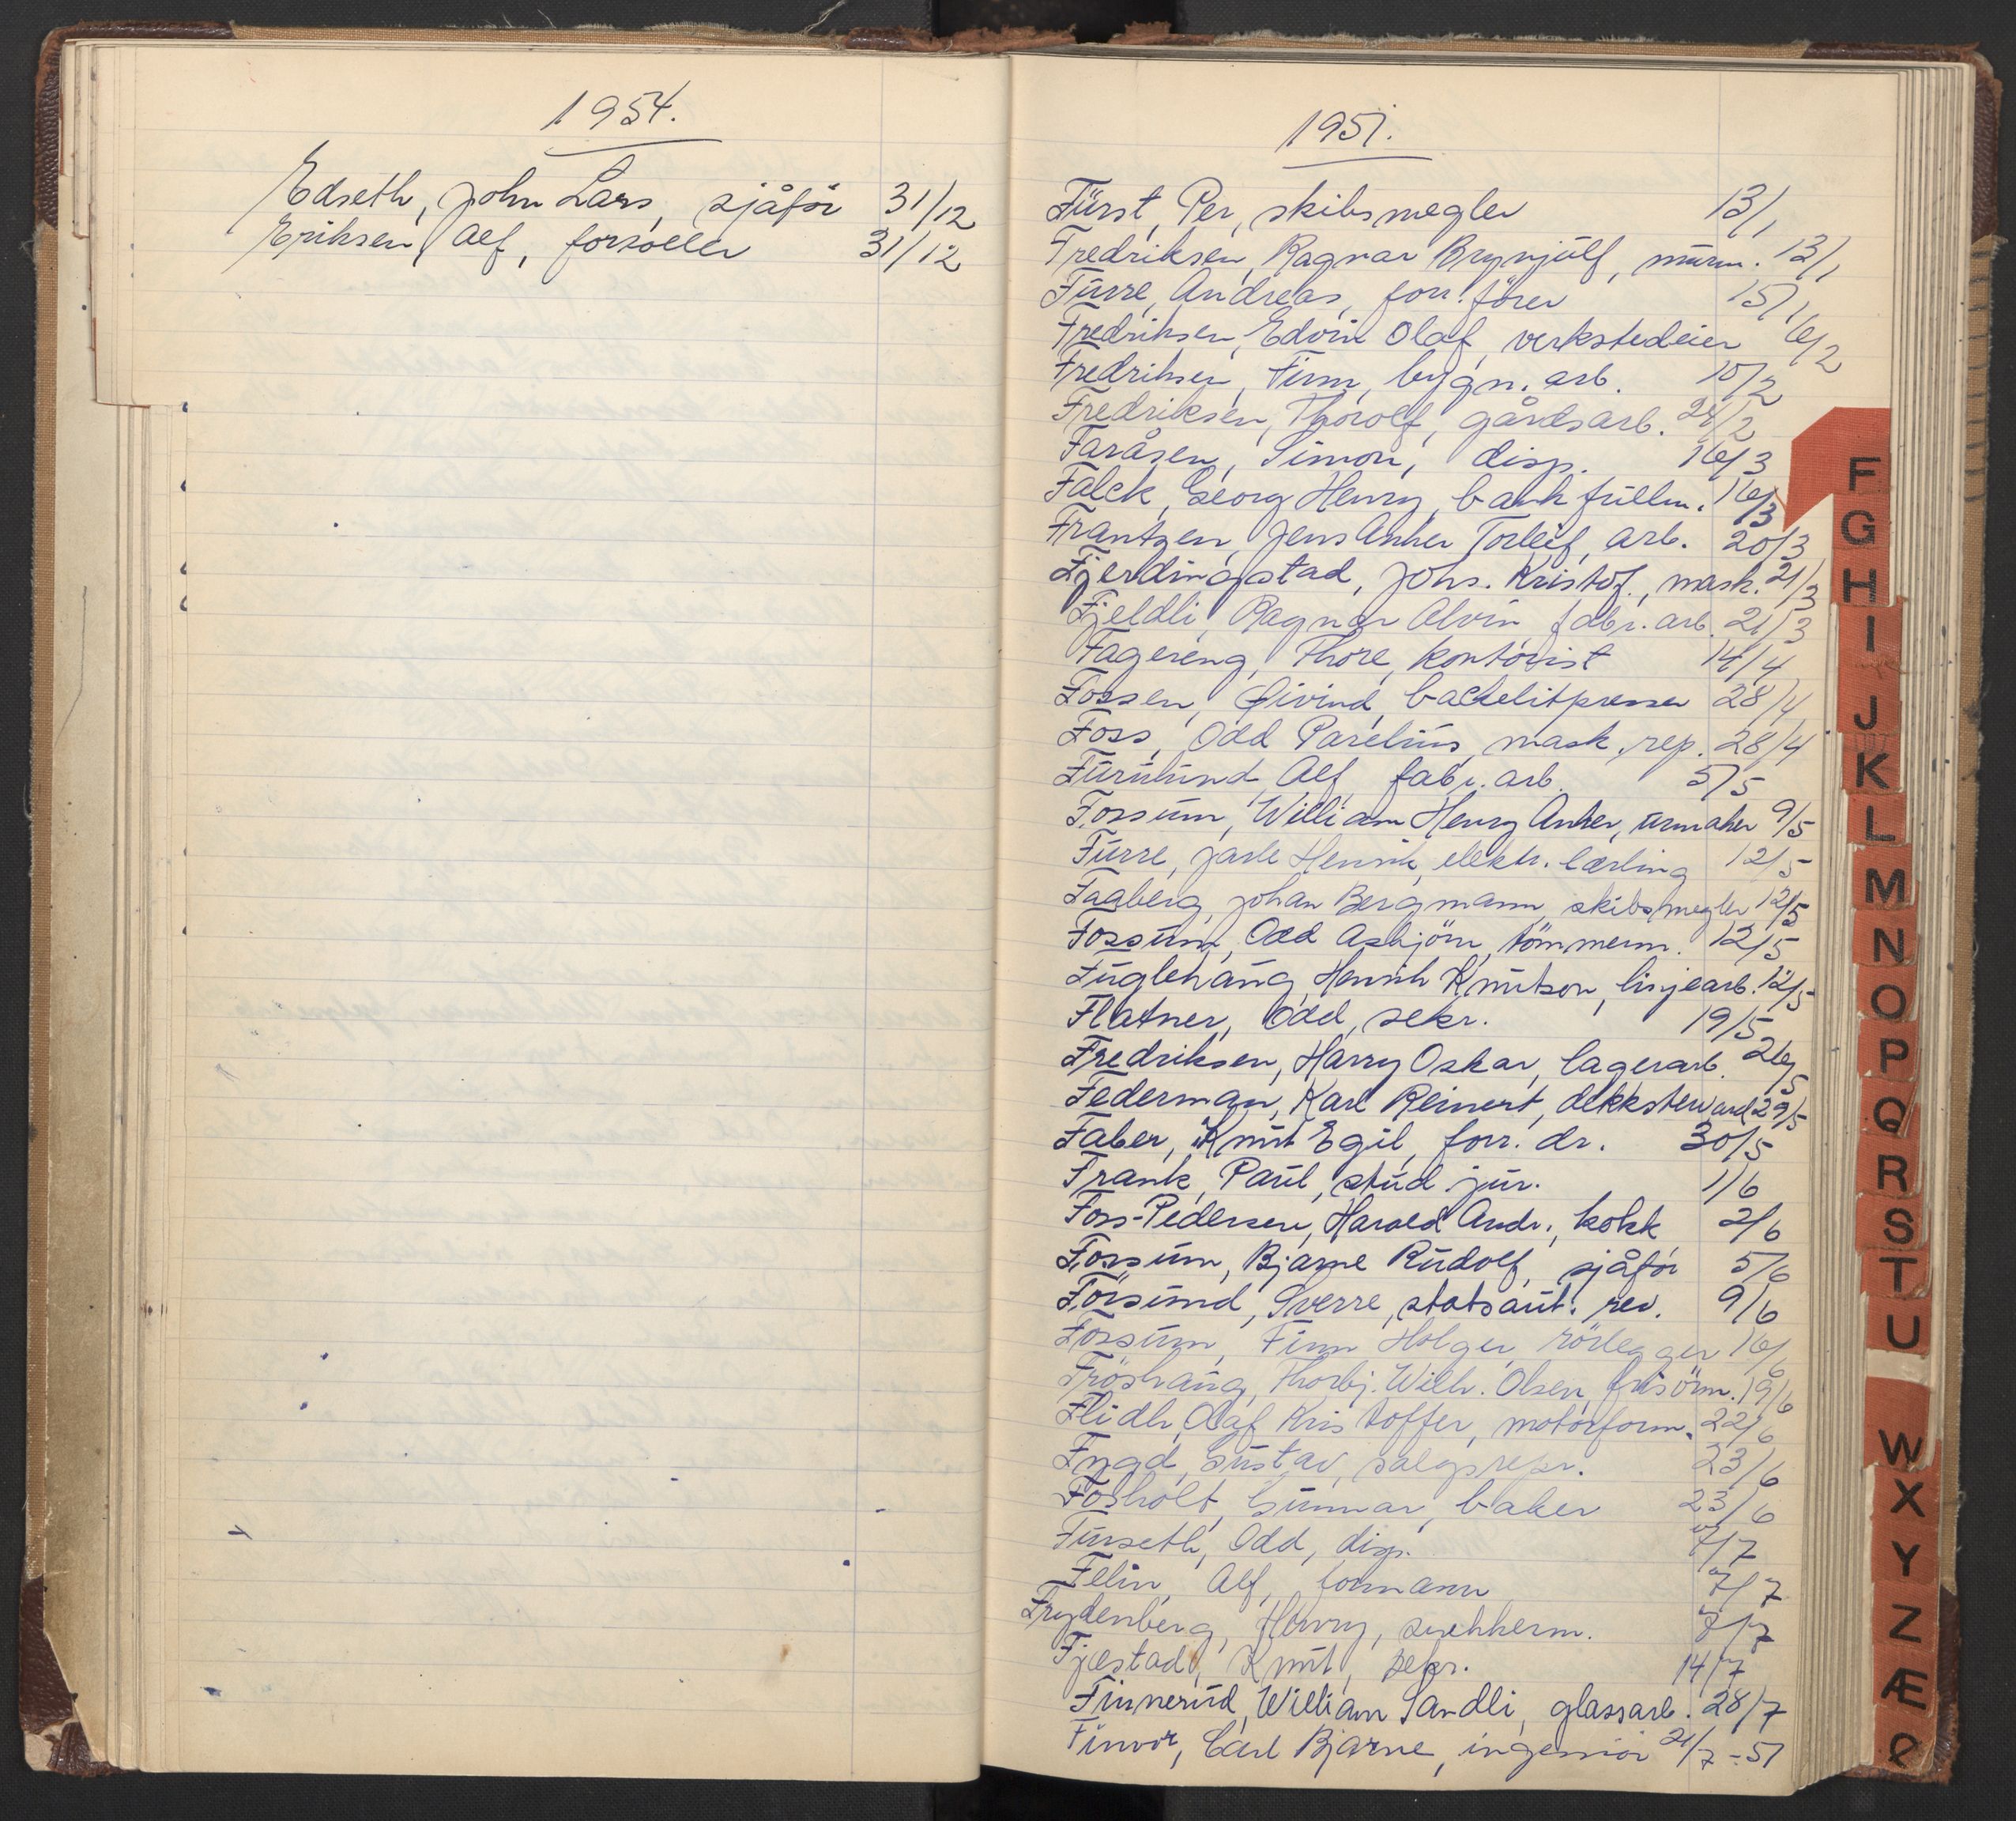 1954.
Edseth, John Lars, sjåför 31/12
Eriksen, Alf, forsöller 31/12
1951.
Fürst, Per, skibsmegler 13/1
Fredriksen, Ragnar Brynjulf, murm. 13/1
Furre, Andreas, forr. förer 15/1
Fredriksen, Edvin Olaf, verkstedeier 6/2
Fredriksen, Finn, bygn. arb. 10/2
Fredriksen, Thorolf, gårdsarb. 24/2
Faråsen, Simon, disp. 16/3
Falck, Georg Henry, bankfullm. 16/3
Frantzen, Jens Anker Torleif, arb. 20/3
Fjerdingstad, Johs. Kristof., mask. 21/3
Fjeldli, Ragnar Alvin, fabr. arb. 21/3
Fagereng, Thore, kontorist 14/4
Fossen, Øivind, backelitpresser 28/4
Foss, Odd Parelius, mask. rep. 28/4
Furulund, Alf, fabr. arb. 5/5
Fossum, William Henry Anker, urmaker 9/5
Furre, Jarle Henrik, elektr. lærling 12/5
Faaberg, Johan Bergmann, skibsmegler 12/5
Fossum, Odd Asbjörn, tömmerm. 12/5
Fuglehaug, Henrik Knutson, linjearb. 12/5
Flatner, Odd, sekr. 19/5
Fredriksen, Harry Oskar, lagerarb. 26/5
Federman, Karl Reinert, dekksteward 29/5
Faber, Knut Egil, forr. dr. 30/5
Frank, Paul, stud jur. 1/6
Foss-Pedersen, Harald Andr., kokk 2/6
Fossum, Bjarne Rudolf, sjåför 5/6
Forsund, Sverre, statsaut. rev. 9/6
Fossum, Finn Holger, rörlegger 16/6
Fröshaug, Thorbj. Wilh. Olsen, frisörm. 19/6
Flidh, Olaf Kristoffer, motorform. 22/6
Fygd, Gustav, salgsrepr. 23/6
Fosholt, Gunnar, baker 23/6
Furseth, Odd, disp. 7/7
Felin, Alf, formann 7/7
Frydenberg, Henry, snekkerm. 7/7
Fjæstad, Knut, sekr. 14/7
Finnerud, William Sandli, glassarb. 28/7
Finvor, Carl Bjarne, ingeniör 21/7-51
F
G
H
I
J
K
L
M
N
O
P
Q
R
S
T
U
W
X
Y
Z
Æ
Ø